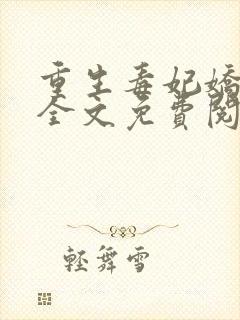 重生毒妃嬌
全文免費閱
輕舞雪